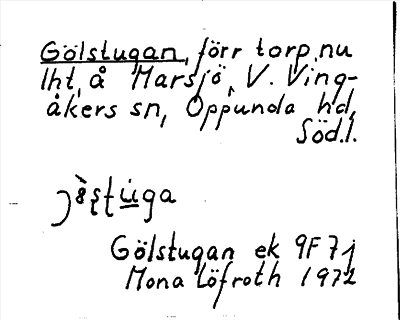 Gölstugan, förr torp, nu
lht, å Marsjö, V. Ving-
åkers sn, Oppunda hd,
Söd.l.
Gölstugan ek 9F7j
Mona Löfroth 1972